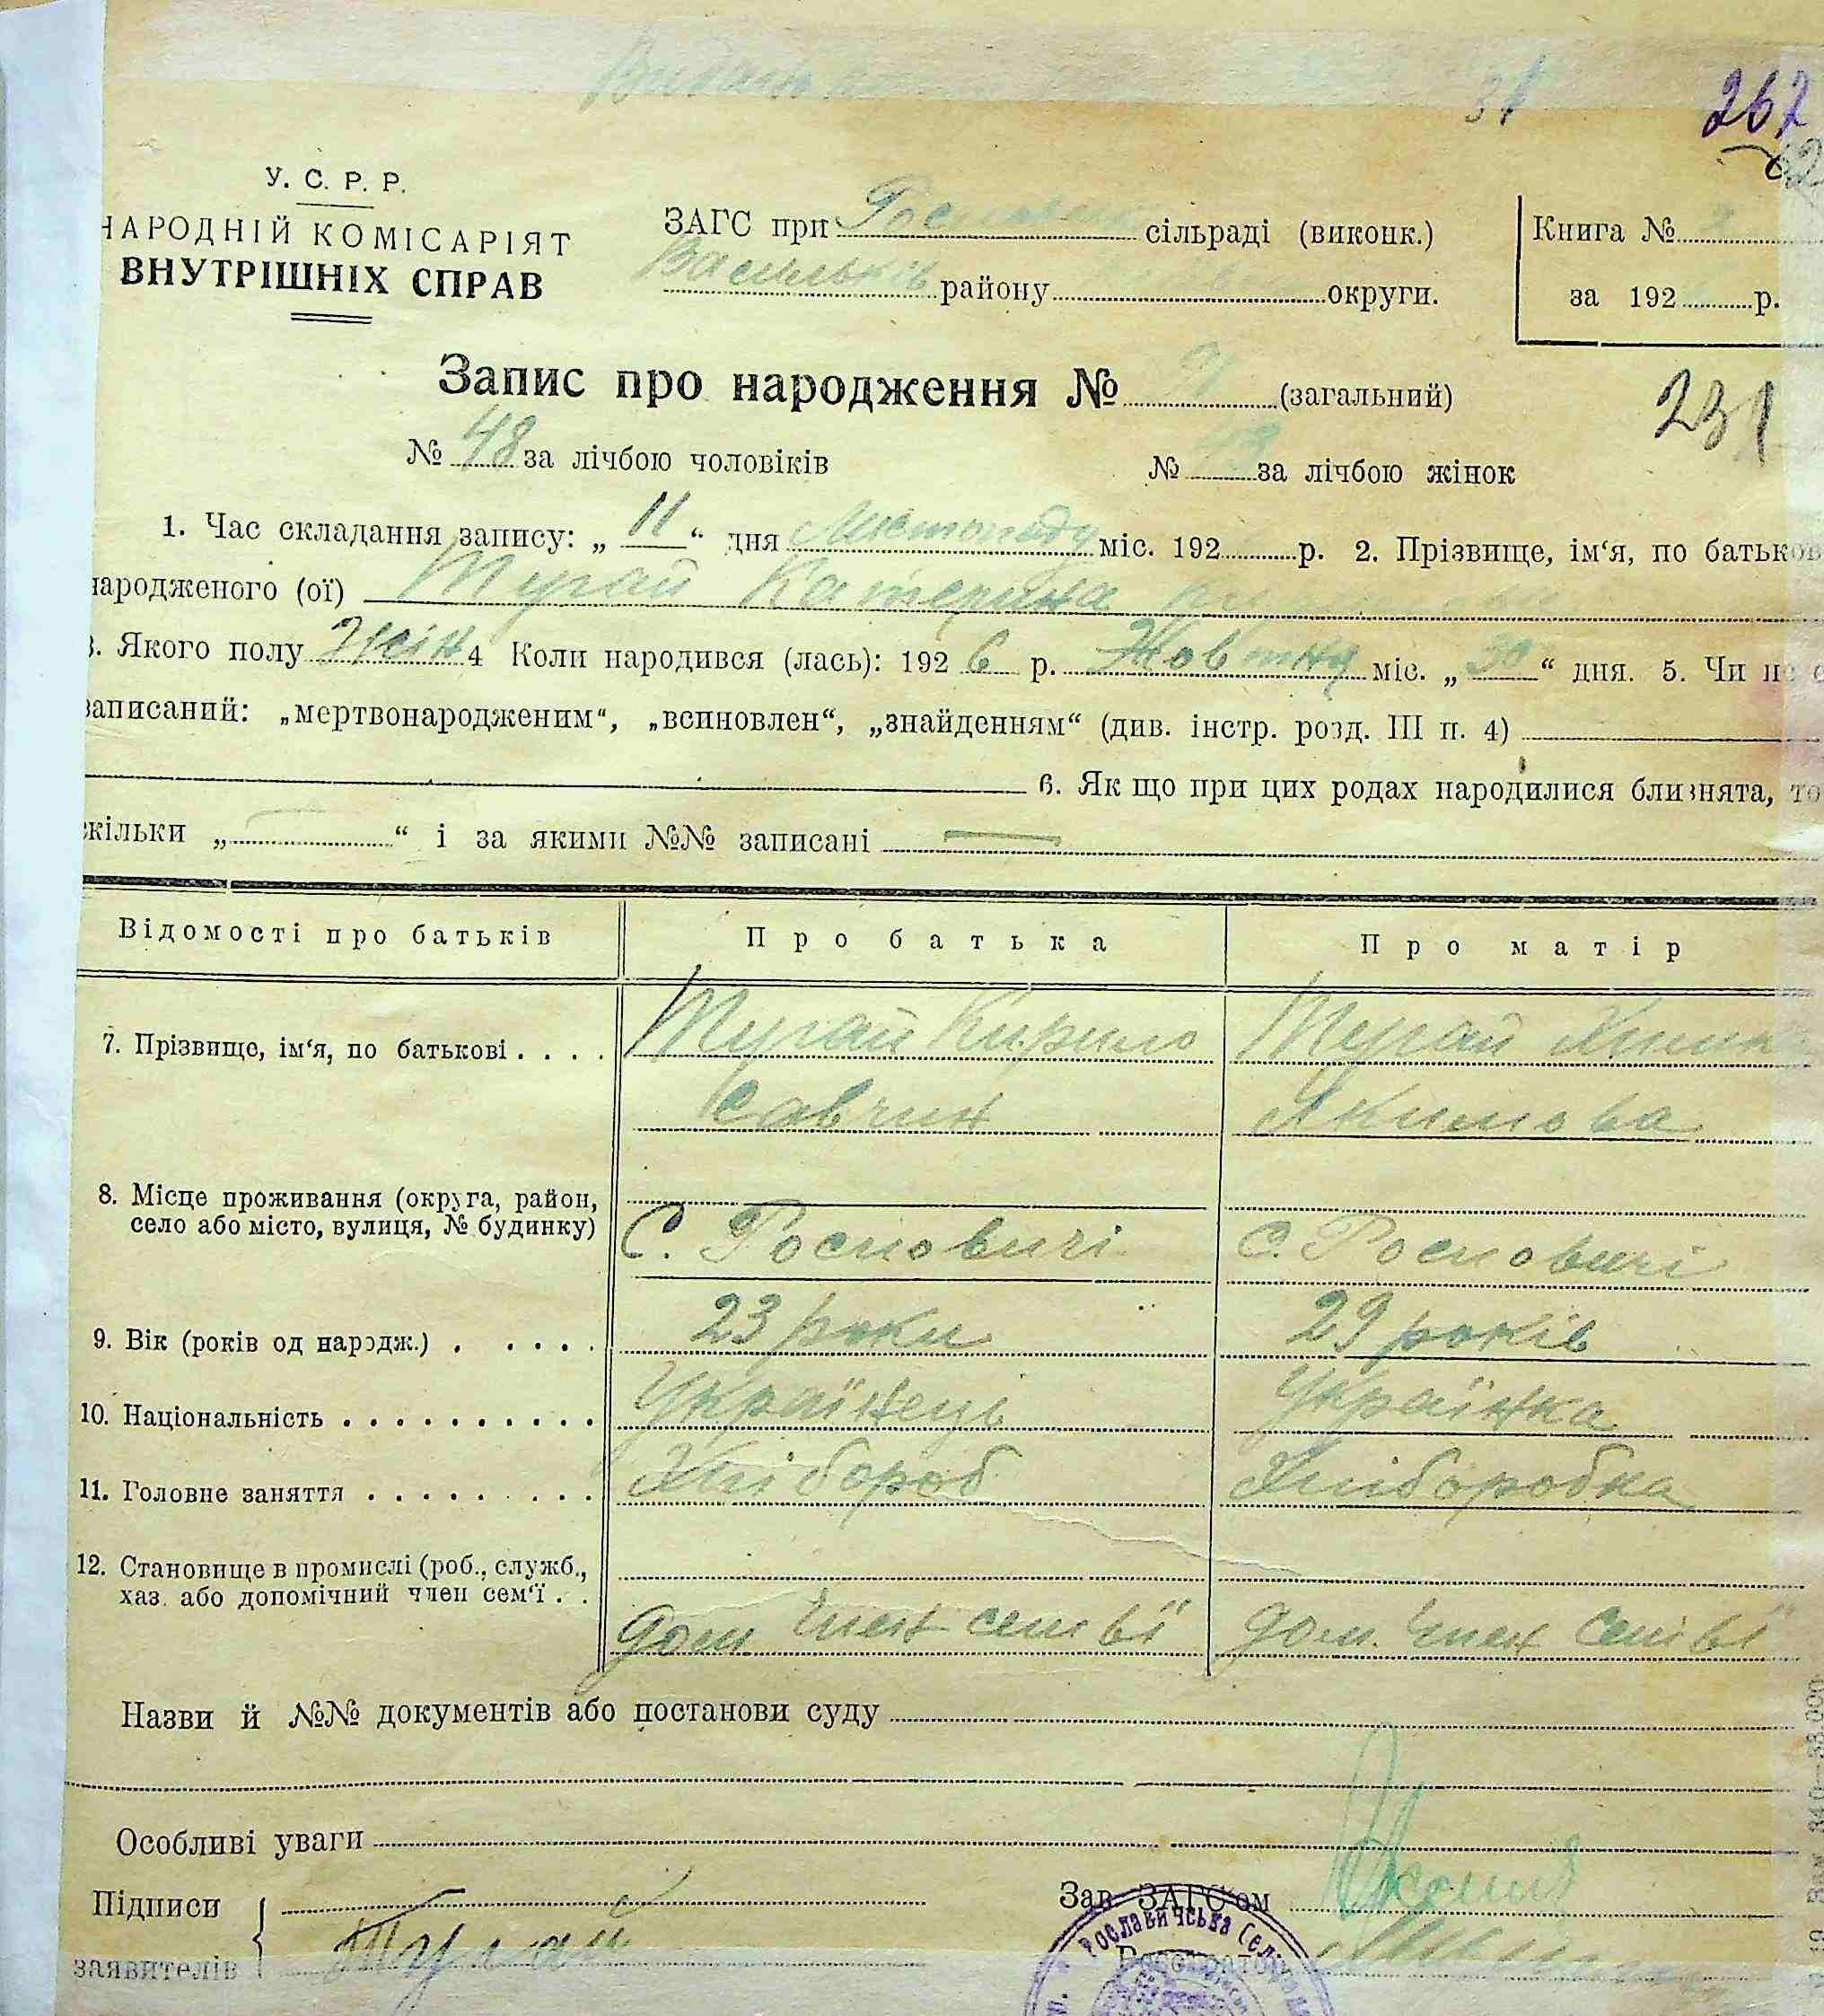 31
267
У. С. Р. Р.
НАРОДНІЙ КОМІСАРІЯТ
ВНУТРІШНІХ СПРАВ
ЗАГС при сільраді (виконк.)
Васильків району округи.
Книга №
за 192 р.
Запис про народження № (загальний)
231
№ 48 за лічбою чоловіків
№ за лічбою жінок
1. Час складання запису: „ 11 “ дня Листопаду міс. 192 р. 2. Прізвище, ім‘я, по батьков
народженого (ої) Тугай Катерина
3. Якого полу Жін 4 Коли народився (лась): 192 6 р. Жовтня міс. „ 30 “ дня. 5. Чи не є
записаний: „мертвонародженим“, „всиновлен“, „знайденням“ (див. інстр. розд. III п. 4)
6. Як що при цих родах народилися близнята, то
скільки „ “ і за якими №№ записані
Відомості про батьків Про батька Про матір
7. Прізвище, ім‘я, по батькові . . . . Тугай Кирило Тугай
Савчин Якимова
8. Місце проживання (округа, район,
село або місто, вулиця, № будинку) С. Росновичі с. Росновичі
9. Вік (років од народж.) . . . . . 23 роки 29 років
10. Національність . . . . . . . . . . Українець Українка
11. Головне заняття . . . . . . . . . Хлібороб Хліборобка
12. Становище в промислі (роб., служб.,
хаз. або допомічний член сем‘ї . .
доп. член семьї доп. член семьї
Назви й №№ документів або постанови суду
Особливі уваги
Підписи
заявителів Тугай
Зав. ЗАГСом
Реєстратор
Рославичська